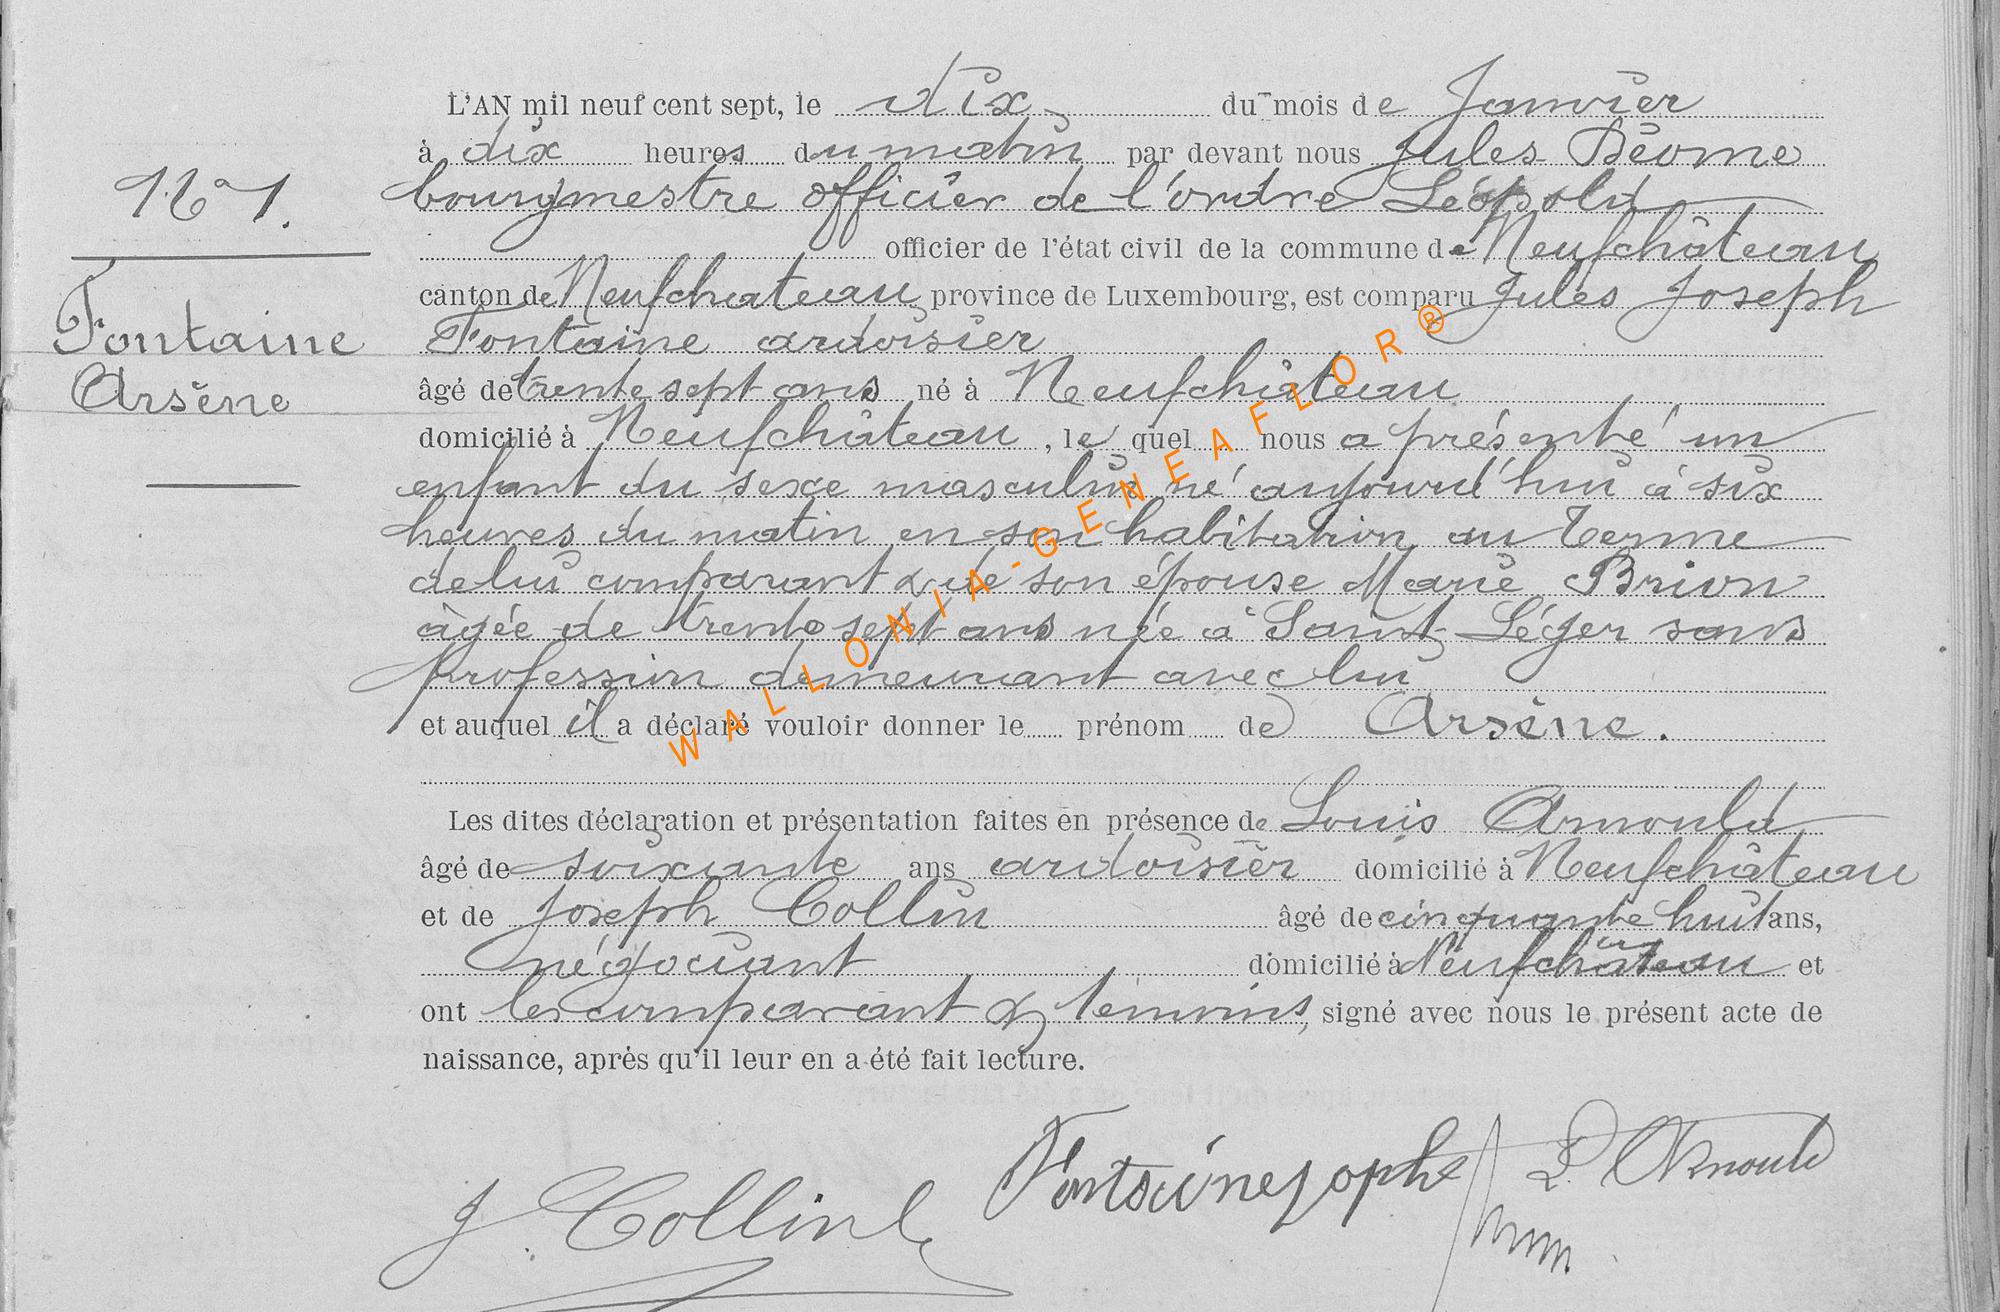 L'AN mil neuf cent sept, le dix du mois de Janvier
à dix heures du matin par devant nous Jules
bourgmestre officier de l'ordre Léopold
N° 1.
officier de l'état civil de la commune de Neufchâteau
canton de Neufchateau province de Luxembourg, est comparu Jules Joseph
Fontaine
Arsène
Fontaine ardoisier
âgé de trente sept ans né à Neufchâteau
domicilié à Neufchâteau, le quel nous a présenté un
enfant du sexe masculin né aujourd'hui à six
heures du matin en son habitation au Terme
de lui comparant & de son épouse Marie Brion
âgée de trente sept ans née à Saint Léger sans
profession demeurant avec lui
et auquel il a déclaré vouloir donner le prénom de Arsène.
Les dites déclaration et présentation faites en présence de Louis Arnould
âgé de soixante ans ardoisier domicilié à Neufchâteau
et de Joseph Collin âgé de cinquante huit ans,
négociant domicilié à Neufchâteau et
ont les comparant & témoins, signé avec nous le présent acte de
naissance, après qu'il leur en a été fait lecture.
J. Collin Fontaine L. Arnould
WALLONIA-GENEAFLOR®